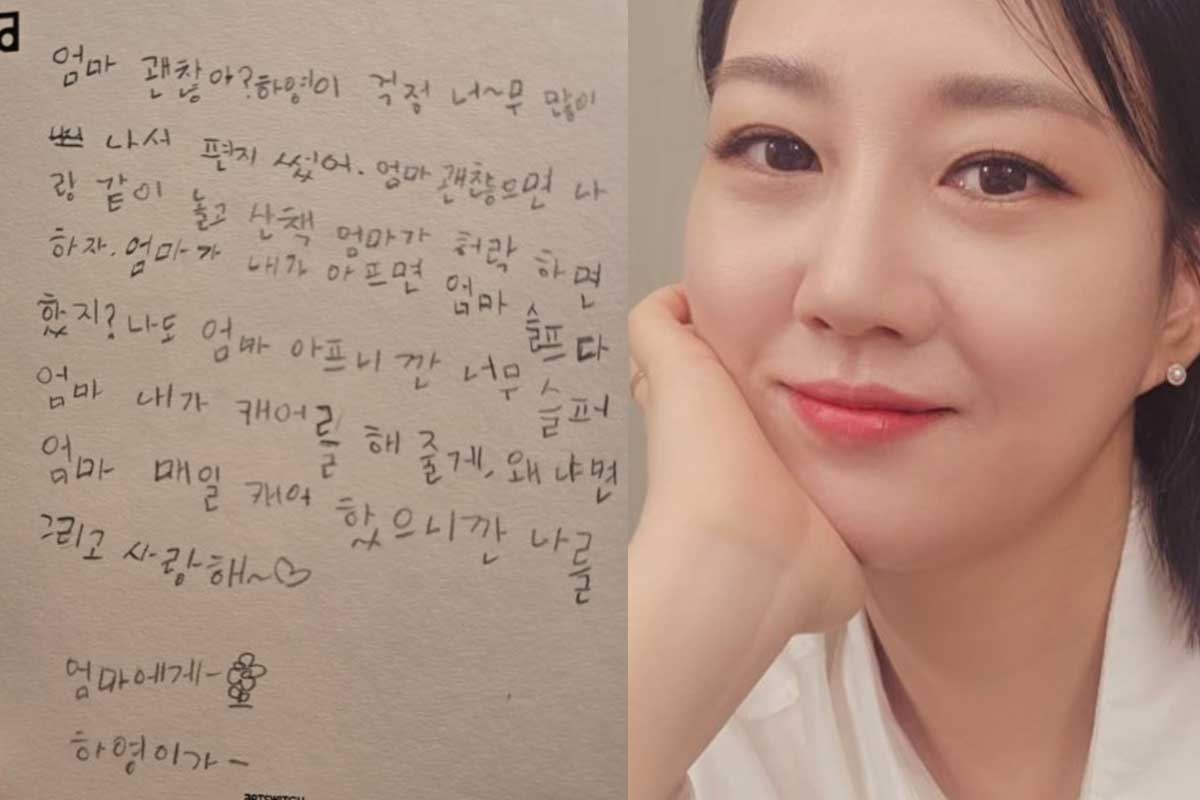 엄마 괜찮아? 하영이 걱정 너~무 많이
나서 편지 썼어. 엄마 괜찮으면 나
랑 같이 놀고 산책 엄마가 허락 하면
하자. 엄마가 내가 아프면 엄마 슬프다
했지? 나도 엄마 아프니깐 너무 슬퍼
엄마 내가 캐어를 해 줄게, 왜냐면
엄마 매일 캐어 했으니깐 나를
그리고 사랑해~♡
엄마에게-
하영이가-